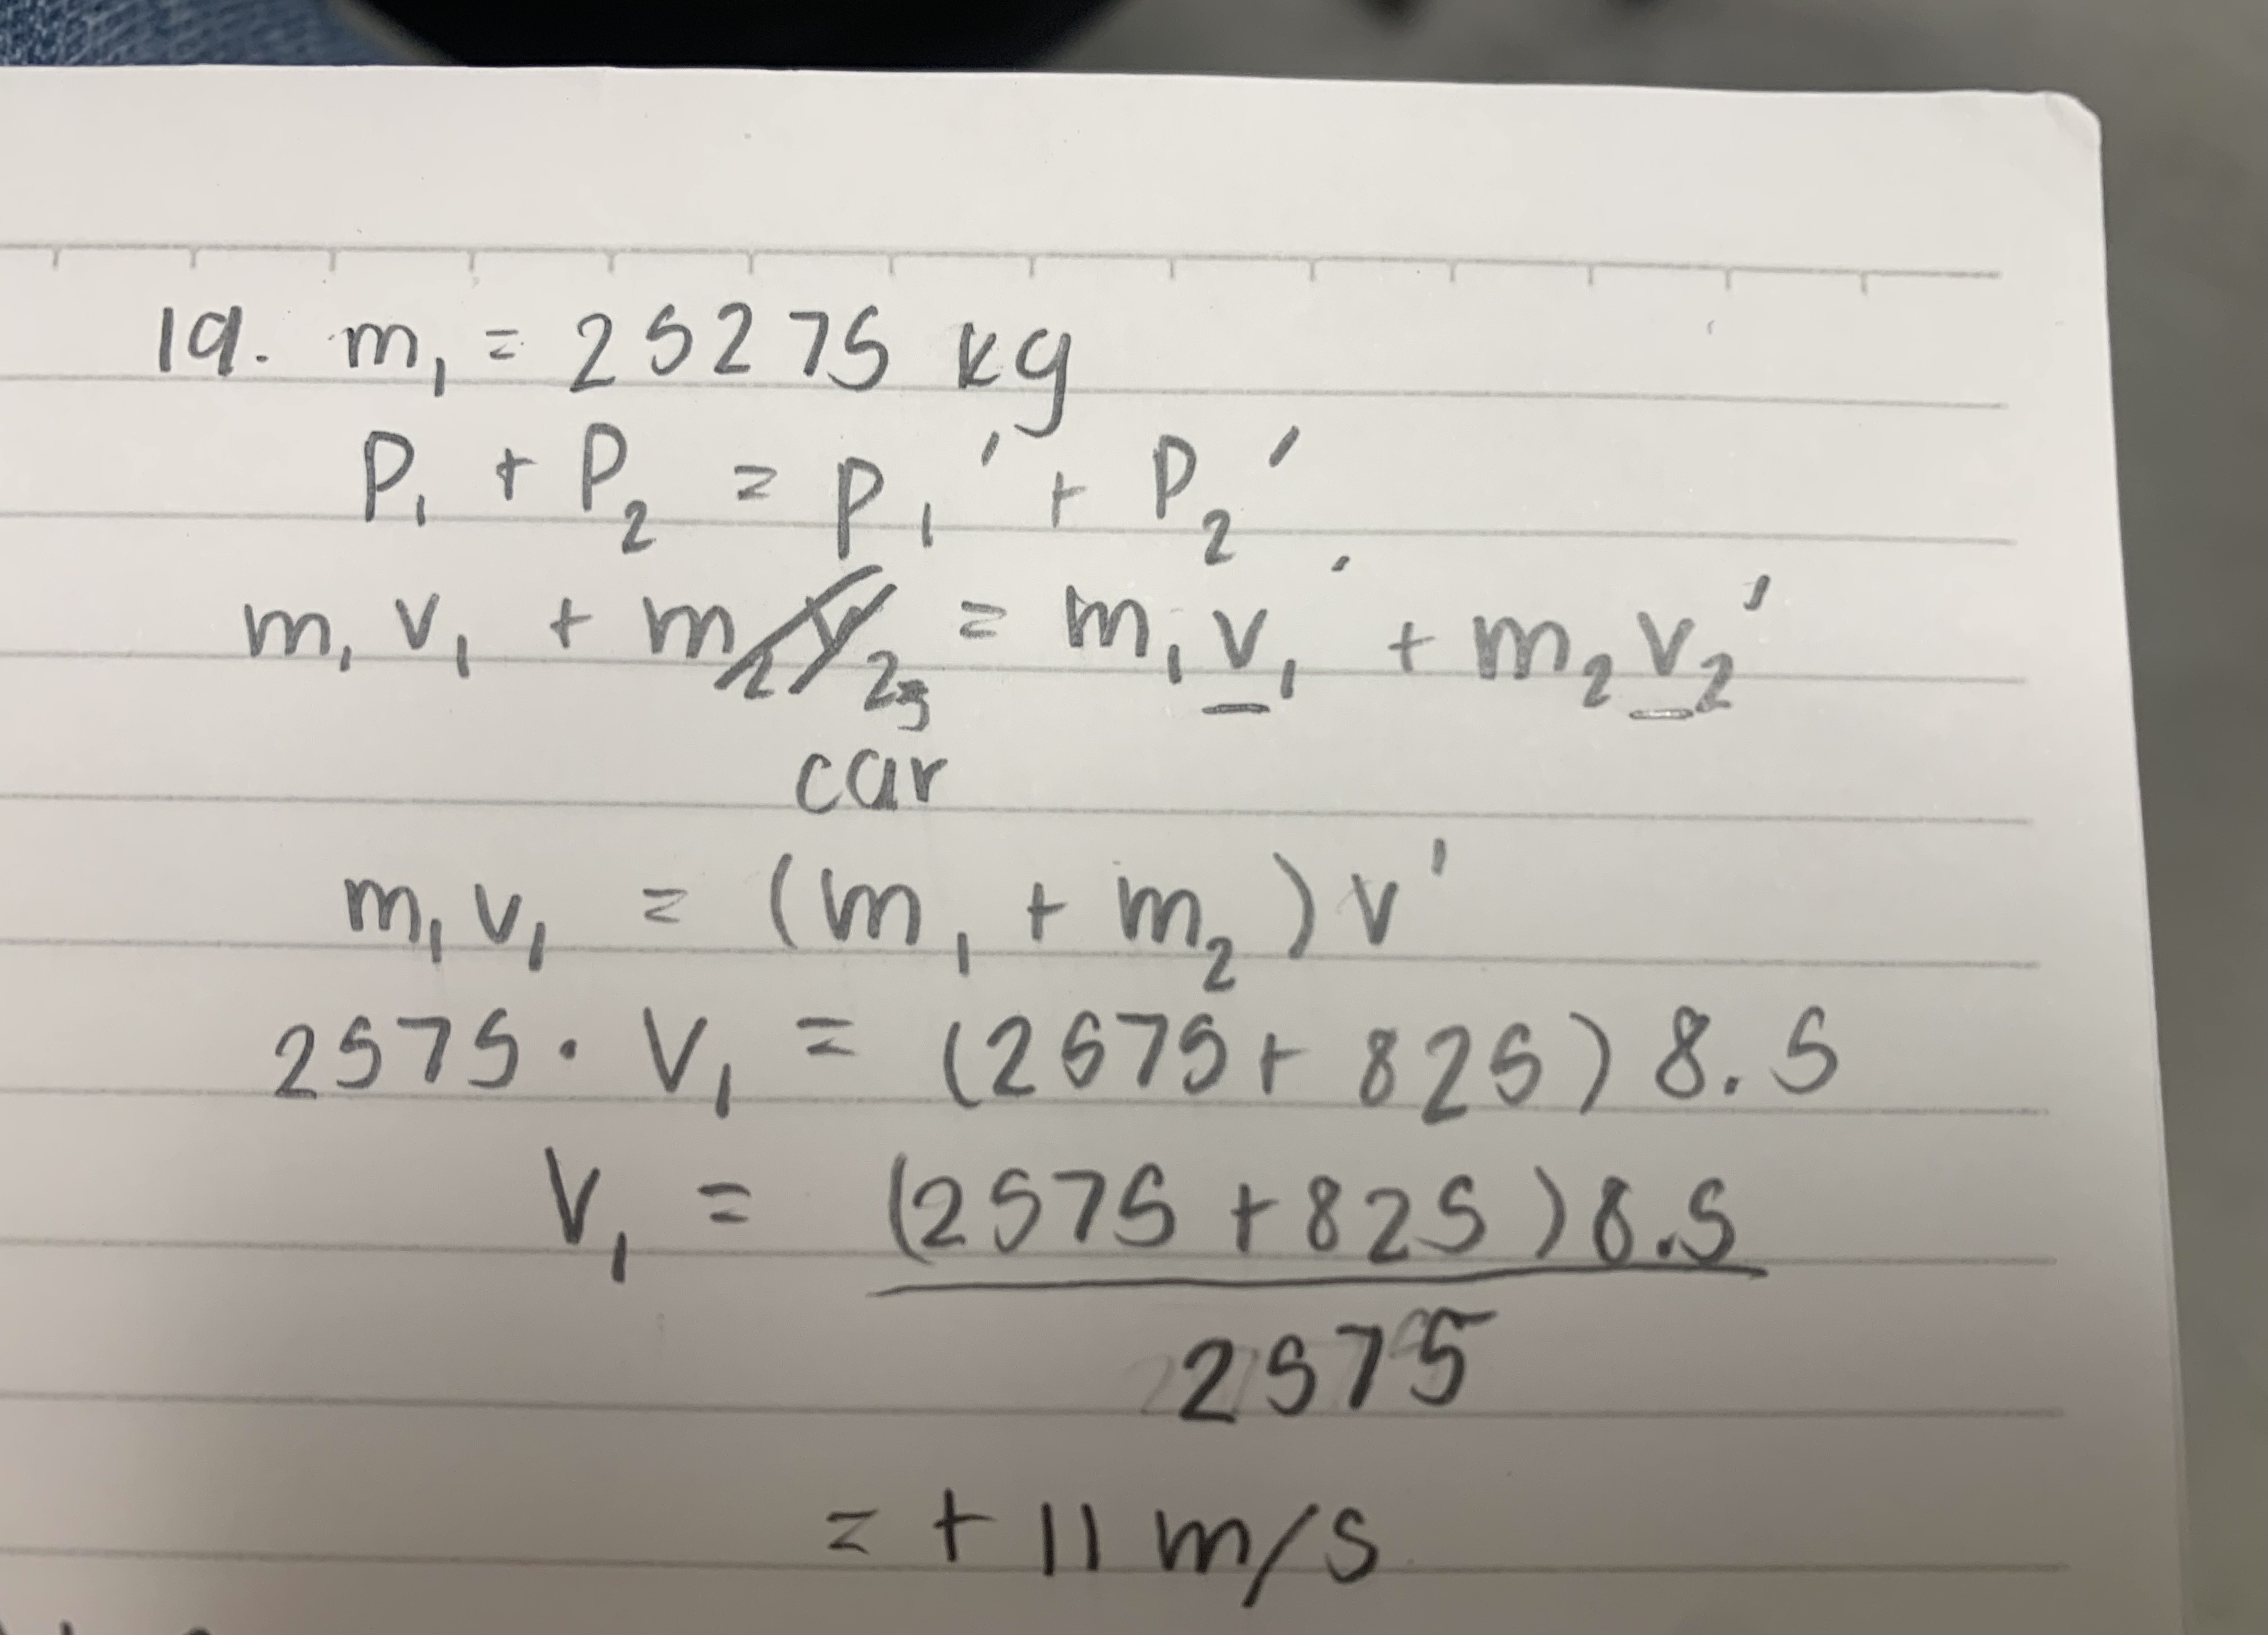 19. m₁ = 25275 kg
P₁ + P₂ = P₁' + P₂'
m₁ v₁ + m₂ v₂ = m₁ v₁' + m₂ v₂'
car
m₁ v₁ = (m₁ + m₂) v'
2575 · V₁ = (2575 + 825) 8.5
V₁ = (2575 + 825) 8.5
2575
= + 11 m/s